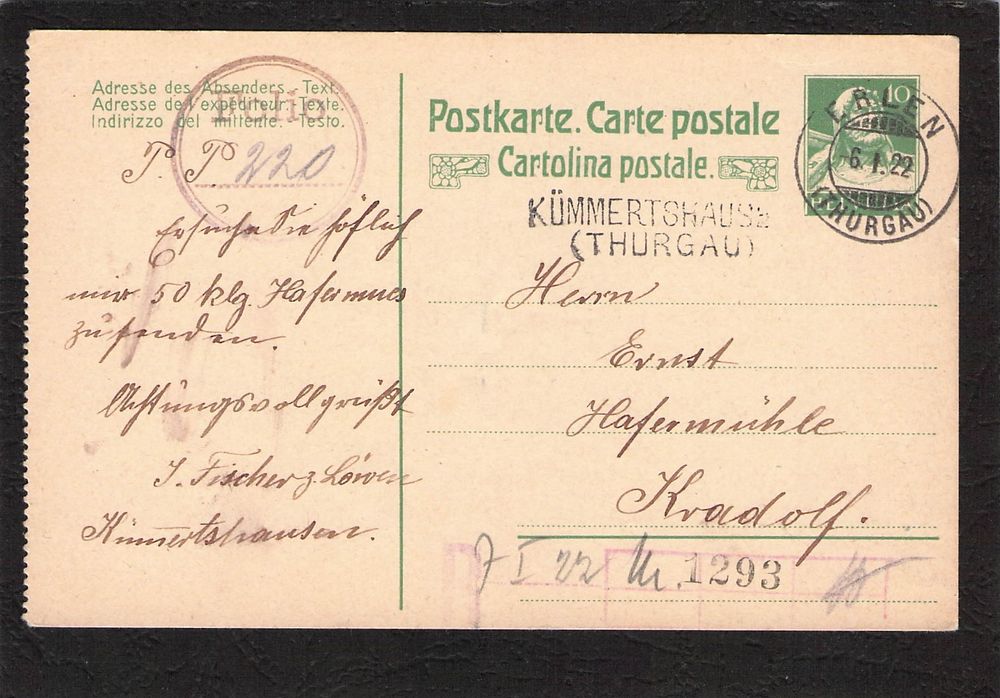 Adresse des Absenders. Text.
Adresse de l'expéditeur. Texte.
Indirizzo del mittente. Testo.
Folio
P. P. 220
Ersuche Sie höflich
mir 50 klg. Hafermues
zu senden.
Achtungsvoll grüßt
J. Fischer z Löwen
Kümmertshausen.
Postkarte. Carte postale
Cartolina postale.
10
ERLEN
6. I. 22
(THURGAU)
KÜMMERTSHAUSE
(THURGAU)
Herrn
Ernst
Hafermühle
Kradolf.
7 I 22 Nr. 1293